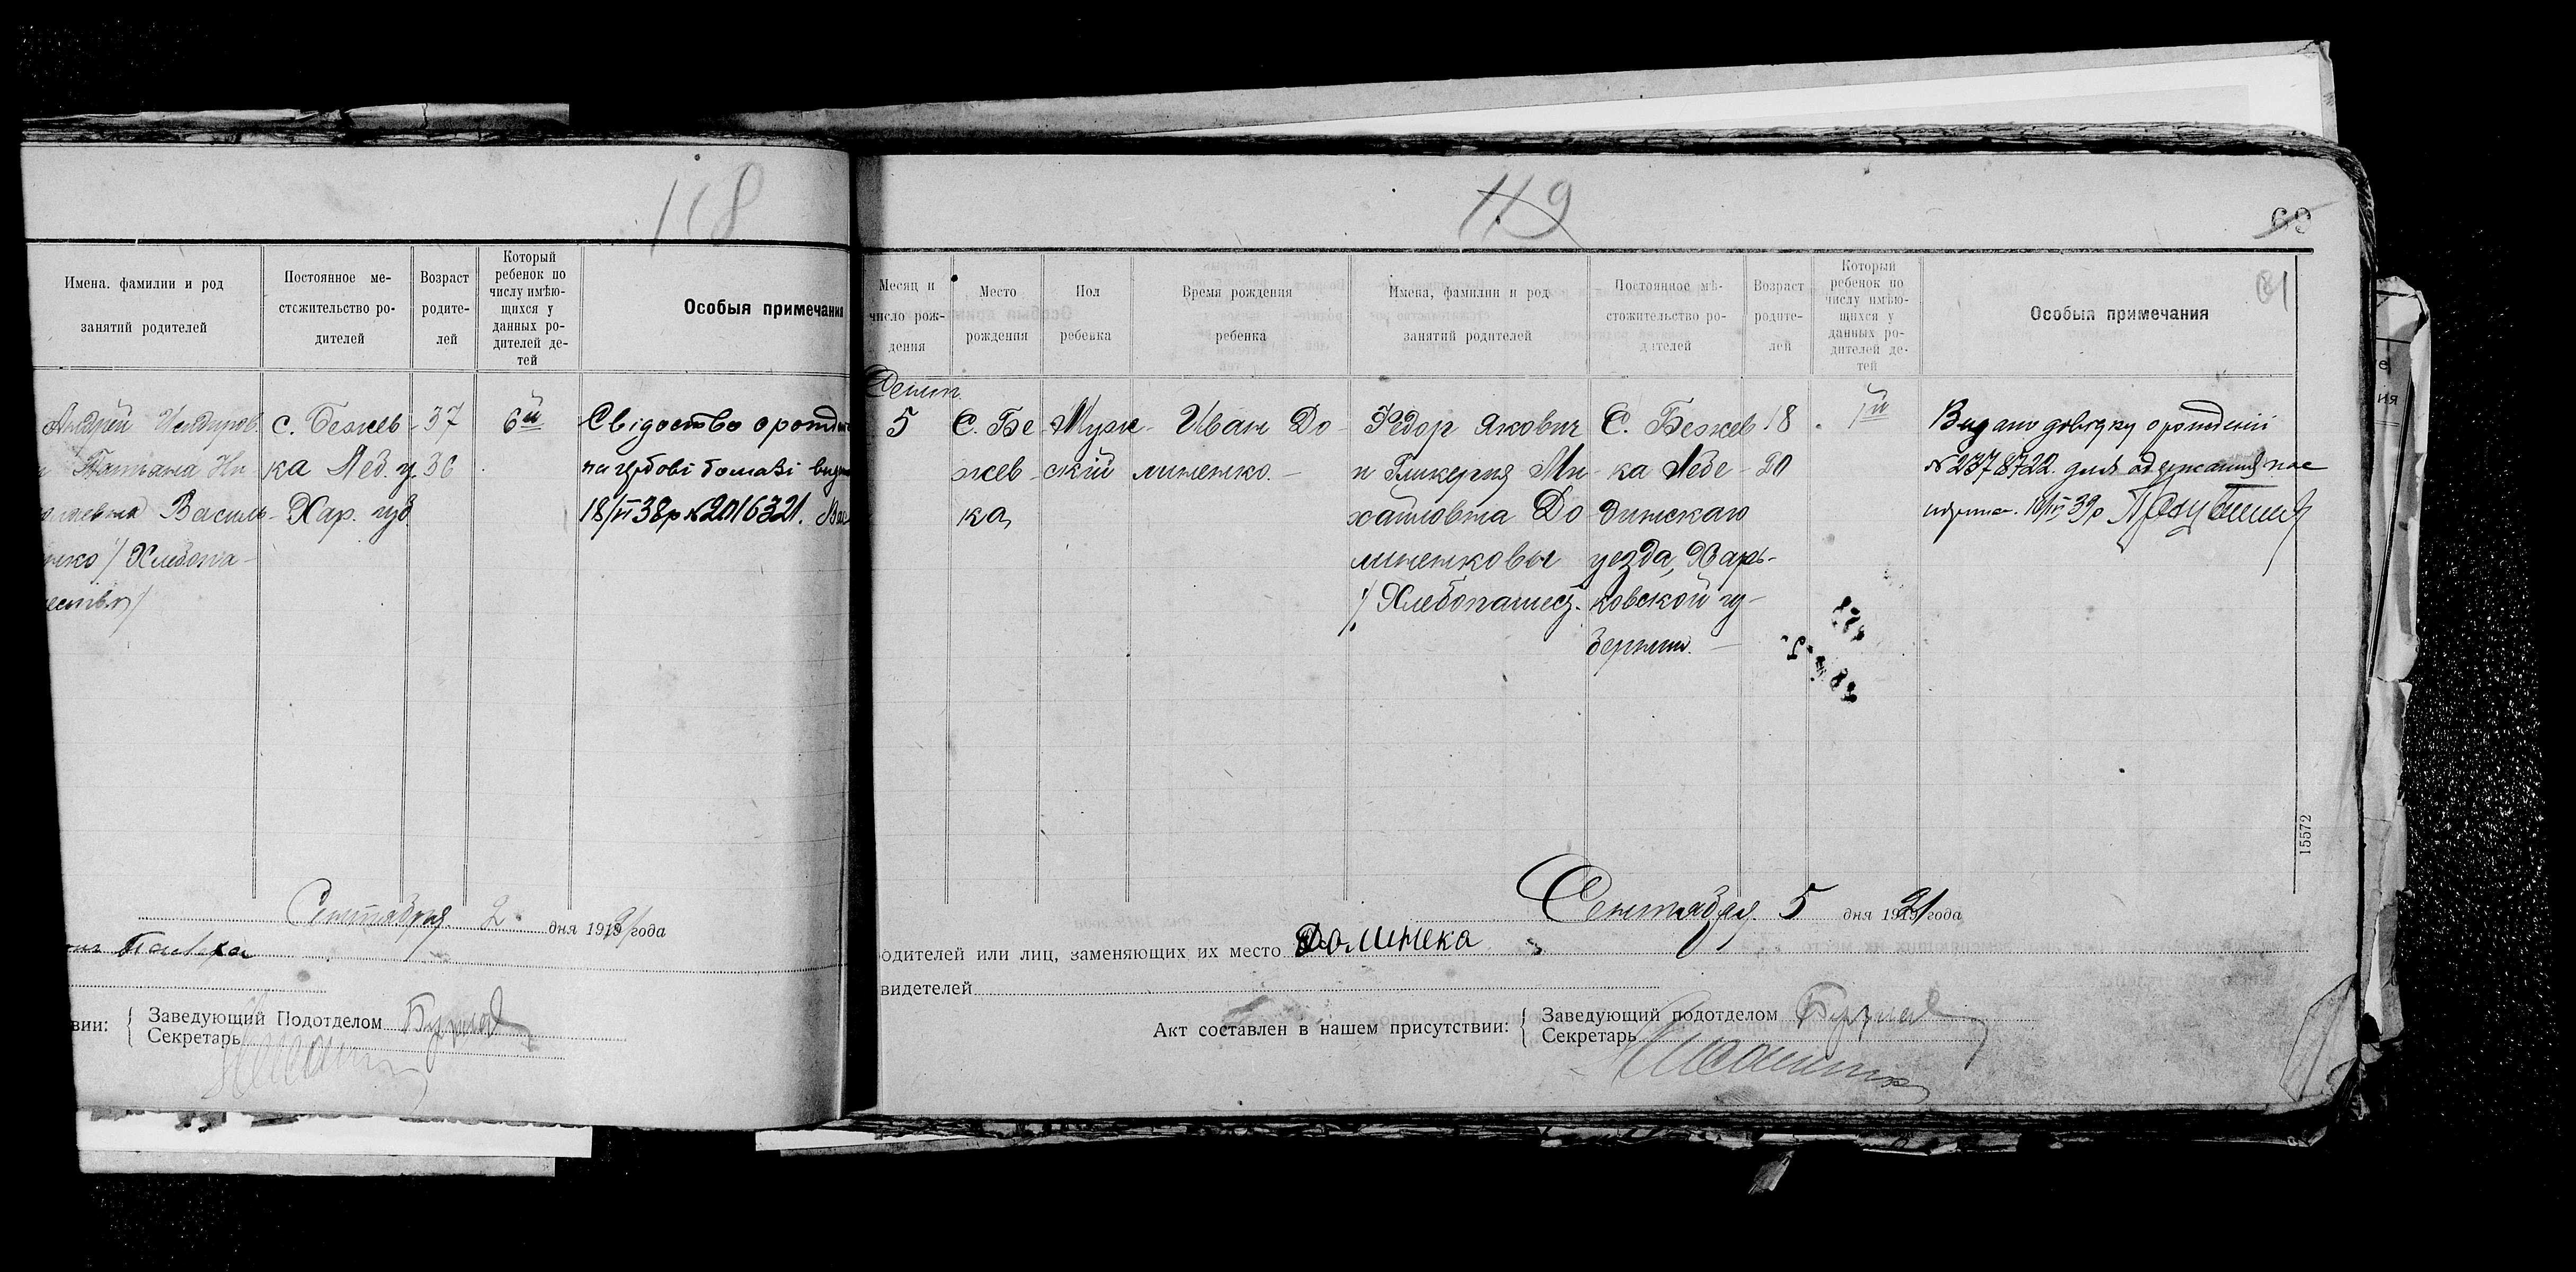 118
Имена. фамилии и род
занятий родителей
Постоянное ме-
стожительство ро-
дителей
Возраст
родите-
лей
Который
ребенок по
числу имѣю-
щихся у
данных ро-
дителей де-
тей
Особыя примечания
Андрей
с. Безжев-
37
6й
Свідоцтво о
Татьяна Ни
ка Леб. у
36
на гербові
Василь-
Хар. губ
18/VI 38р №2016321.
енко / Хлебопа-
Сентября 2 дня 1921 года
вии:
Заведующий Подотделом
Секретарь
119
69
81
Месяц и
число рож-
дения
Место
рождения
Пол
ребенка
Время рождения
ребенка
Имена, фамилии и род
занятий родителей
Постоянное мѣ-
стожительство ро-
дителей
Возраст
родите-
лей
Который
ребенок по
числу имѣю-
щихся у
данных ро-
дителей де-
тей
Особыя примечания
Сент.
5
С. Бе
жев-
ка
Муж-
ский
Иван До-
миненко.
Федор Якович
и Гликерия Ми-
хайловна До-
миненковы
/ Хлебопашец.
С. Бежев
ка Лебе-
динскаго
уезда, Харь-
ковской гу-
бернии.
18
20
1й
Видано довідку о рождении
№ 2378722. для одержания пас
18/IV 39р
15572
Сентября 5 дня 1921 года
одителей или лиц, заменяющих их место Доминека
видетелей
Акт составлен в нашем присутствии:
Заведующий подотделом
Секретарь